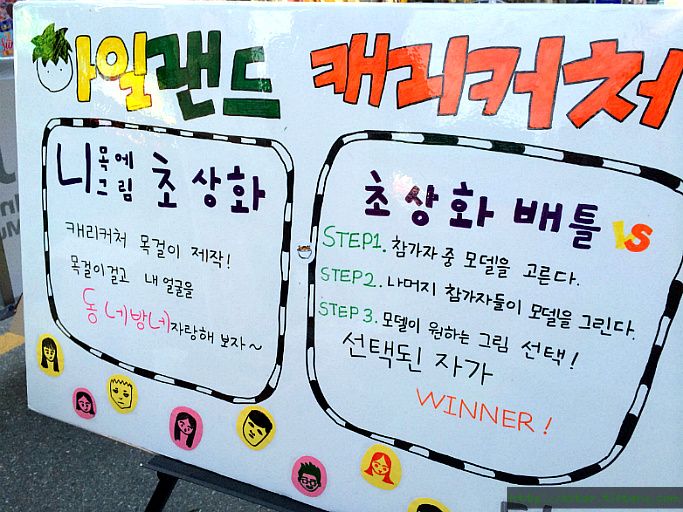 아일랜드 캐리커처
니 목에 그림 초상화
캐리커처 목걸이 제작!
목걸이걸고 내 얼굴을
동네방네 자랑해 보자~
초상화 배틀 VS
STEP1. 참가자 중 모델을 고른다.
STEP2. 나머지 참가자들이 모델을 그린다.
STEP3. 모델이 원하는 그림 선택!
선택된 자가
WINNER!